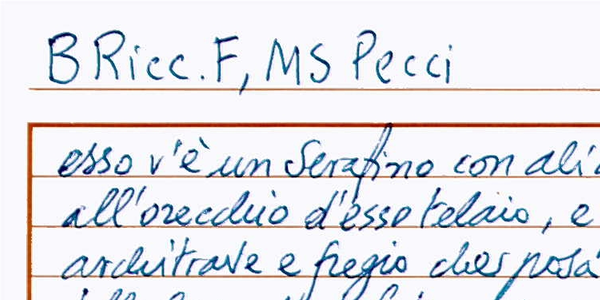 B Ricc. F, MS Pecci
esso v'è un Serafino con ali
all'orecchio d'esso telaio, e
architrave e fregio che posa